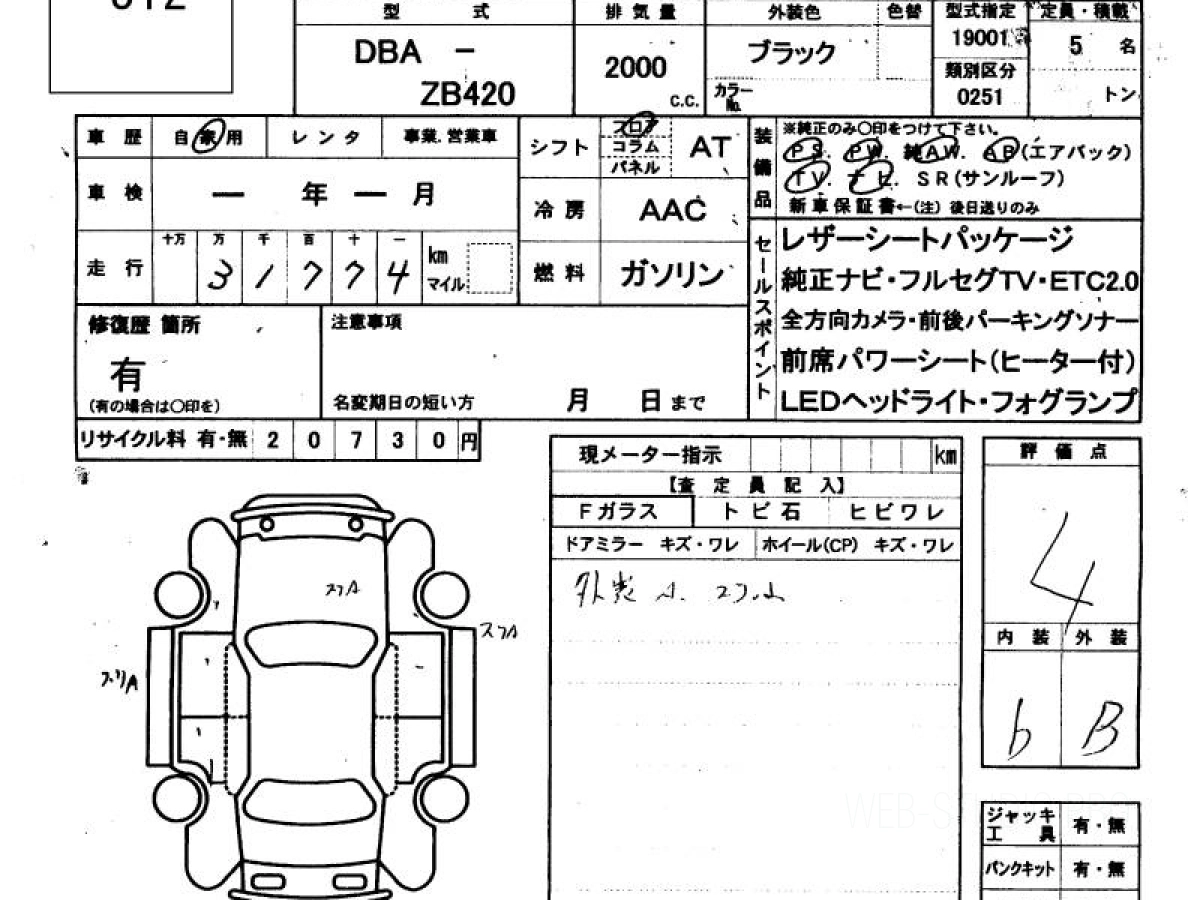 型 式 排気量 外装色 色替 型式指定 定員・積載
DBA － ZB420
2000 C.C.
ブラック
カラーNo.
19001
類別区分
0251
5 名
トン
車歴 自家用 レンタ 事業.営業車
シフト フロア コラム パネル AT
車検 ー 年 ー 月
冷房 AAC
走行 十万 万 千 百 十 一
3 1 7 7 4 km マイル
燃料 ガソリン
装備品 ※純正のみ〇印をつけて下さい。
PS. PW. 純AW. AB(エアバック)
TV. ナビ. SR(サンルーフ)
新車保証書←(注) 後日送りのみ
セールスポイント
レザーシートパッケージ
純正ナビ・フルセグTV・ETC2.0
全方向カメラ・前後パーキングソナー
前席パワーシート(ヒーター付)
LEDヘッドライト・フォグランプ
修復歴 箇所
有
(有の場合は〇印を)
注意事項
名変期日の短い方 月 日 まで
リサイクル料 有・無 2 0 7 3 0 円
現メーター指示 km
【査定員記入】
Fガラス トビ石 ヒビワレ
ドアミラー キズ・ワレ ホイール(CP) キズ・ワレ
外装 A.
スリA
スリA
スリA
評価点
4
内装 外装
b B
ジャッキ工具 有・無
パンクキット 有・無